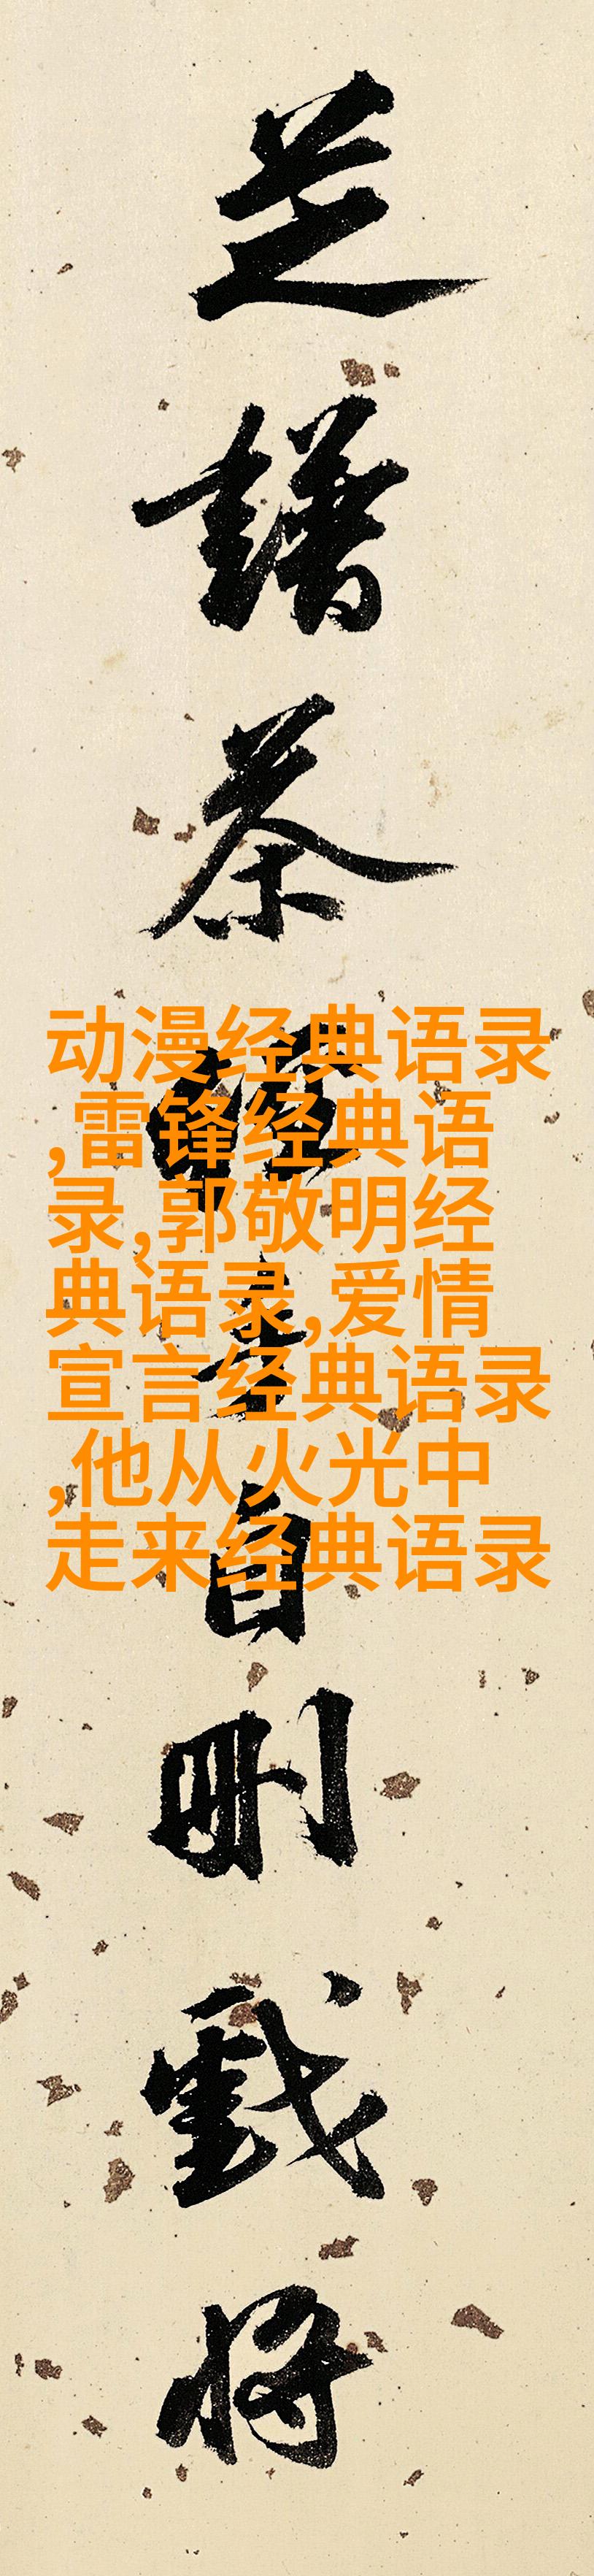 芝譜茶經手自刪戲將
动漫经典语录
,雷锋经典语
录,郭敬明经
典语录,爱情
宣言经典语录
,他从火光中
走来经典语录